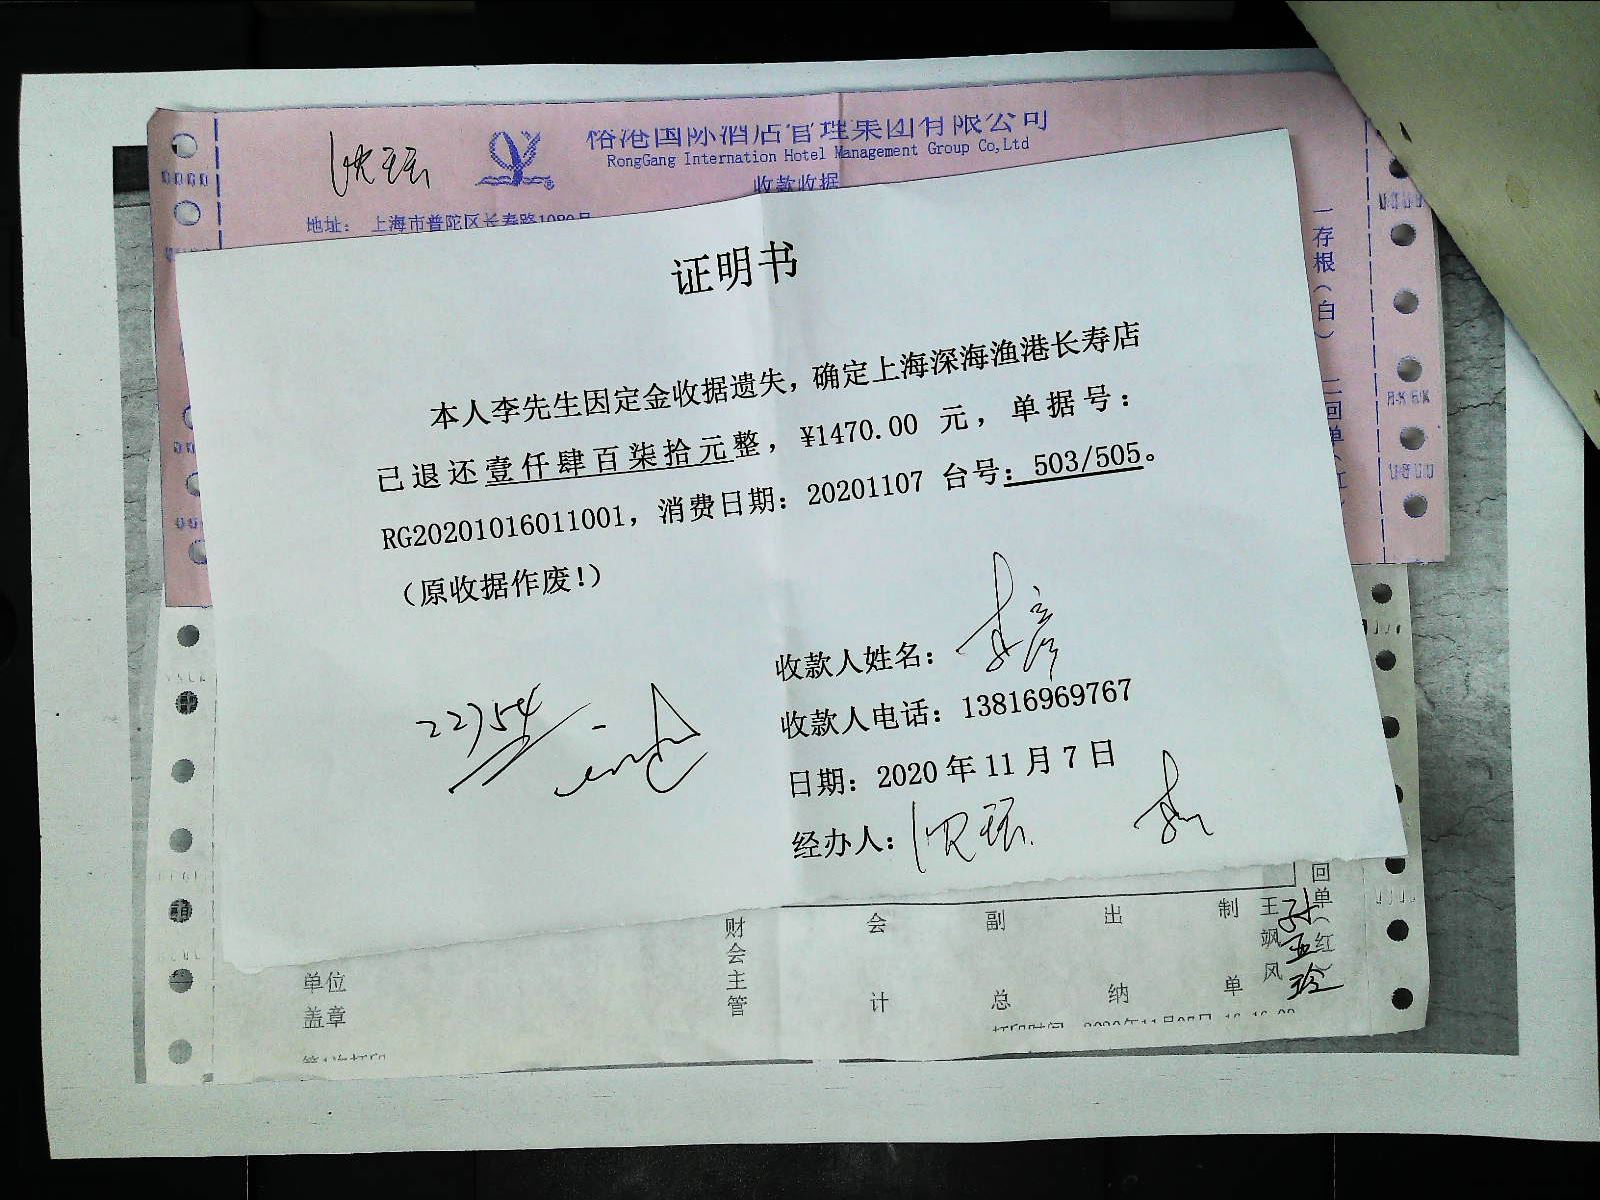 裕港国际酒店管理集团有限公司
RongGang Internation Hotel Management Group Co,Ltd
收款收据
地址： 上海市普陀区长寿路1080号
一存根（白）
二回单（红
证明书
本人李先生因定金收据遗失，确定上海深海渔港长寿店
已退还壹仟肆百柒拾元整，¥1470.00 元，单据号：
RG20201016011001，消费日期：20201107 台号：503/505。
（原收据作废！）
收款人姓名：
收款人电话：13816969767
日期：2020年11月7日
经办人：
22754
回单（红）
单位
盖章
财会主管
会计
副总
出纳
制单
王飒风
打印时间 2020年11月07日
第1次打印